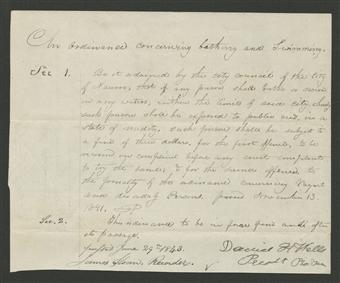 An ordinance concerning bathing and Swimming.
Sec 1. Be it ordained by the city council of the City
of Nauvoo, that if any person shall bathe or swim
in any waters, within the limits of said city,
such persons shall be exposed to public view, in a
state of nudity, such persons shall be subject to
a fine of three dollars, for the first offence, to be
recovered on complaint before any court competent
to try the same; & for the second offence
to the penalty of the ordinance concerning Vagrant
and disorderly Persons, passed November 13.
1841.
Sec. 2. This ordinance to be in force from and after
its passage.
passed June 29th 1843.
Daniel H Wells
James Sloan, Recorder.
Presdt Pro Tem